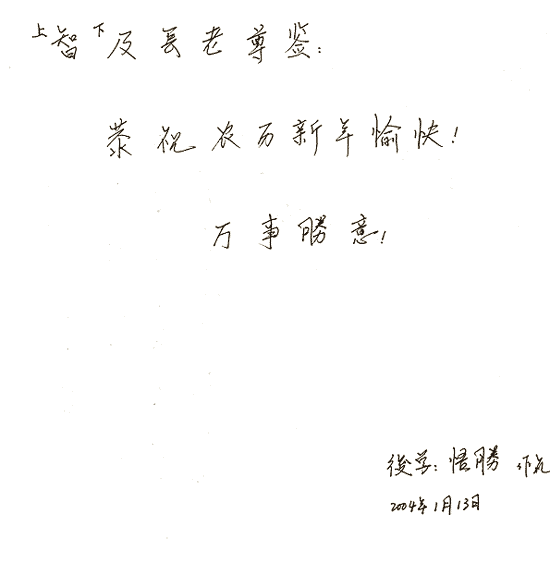 上智下及長老尊鉴：
恭祝农历新年愉快！
万事勝意！
後学：悟勝 作礼
2004年1月13日